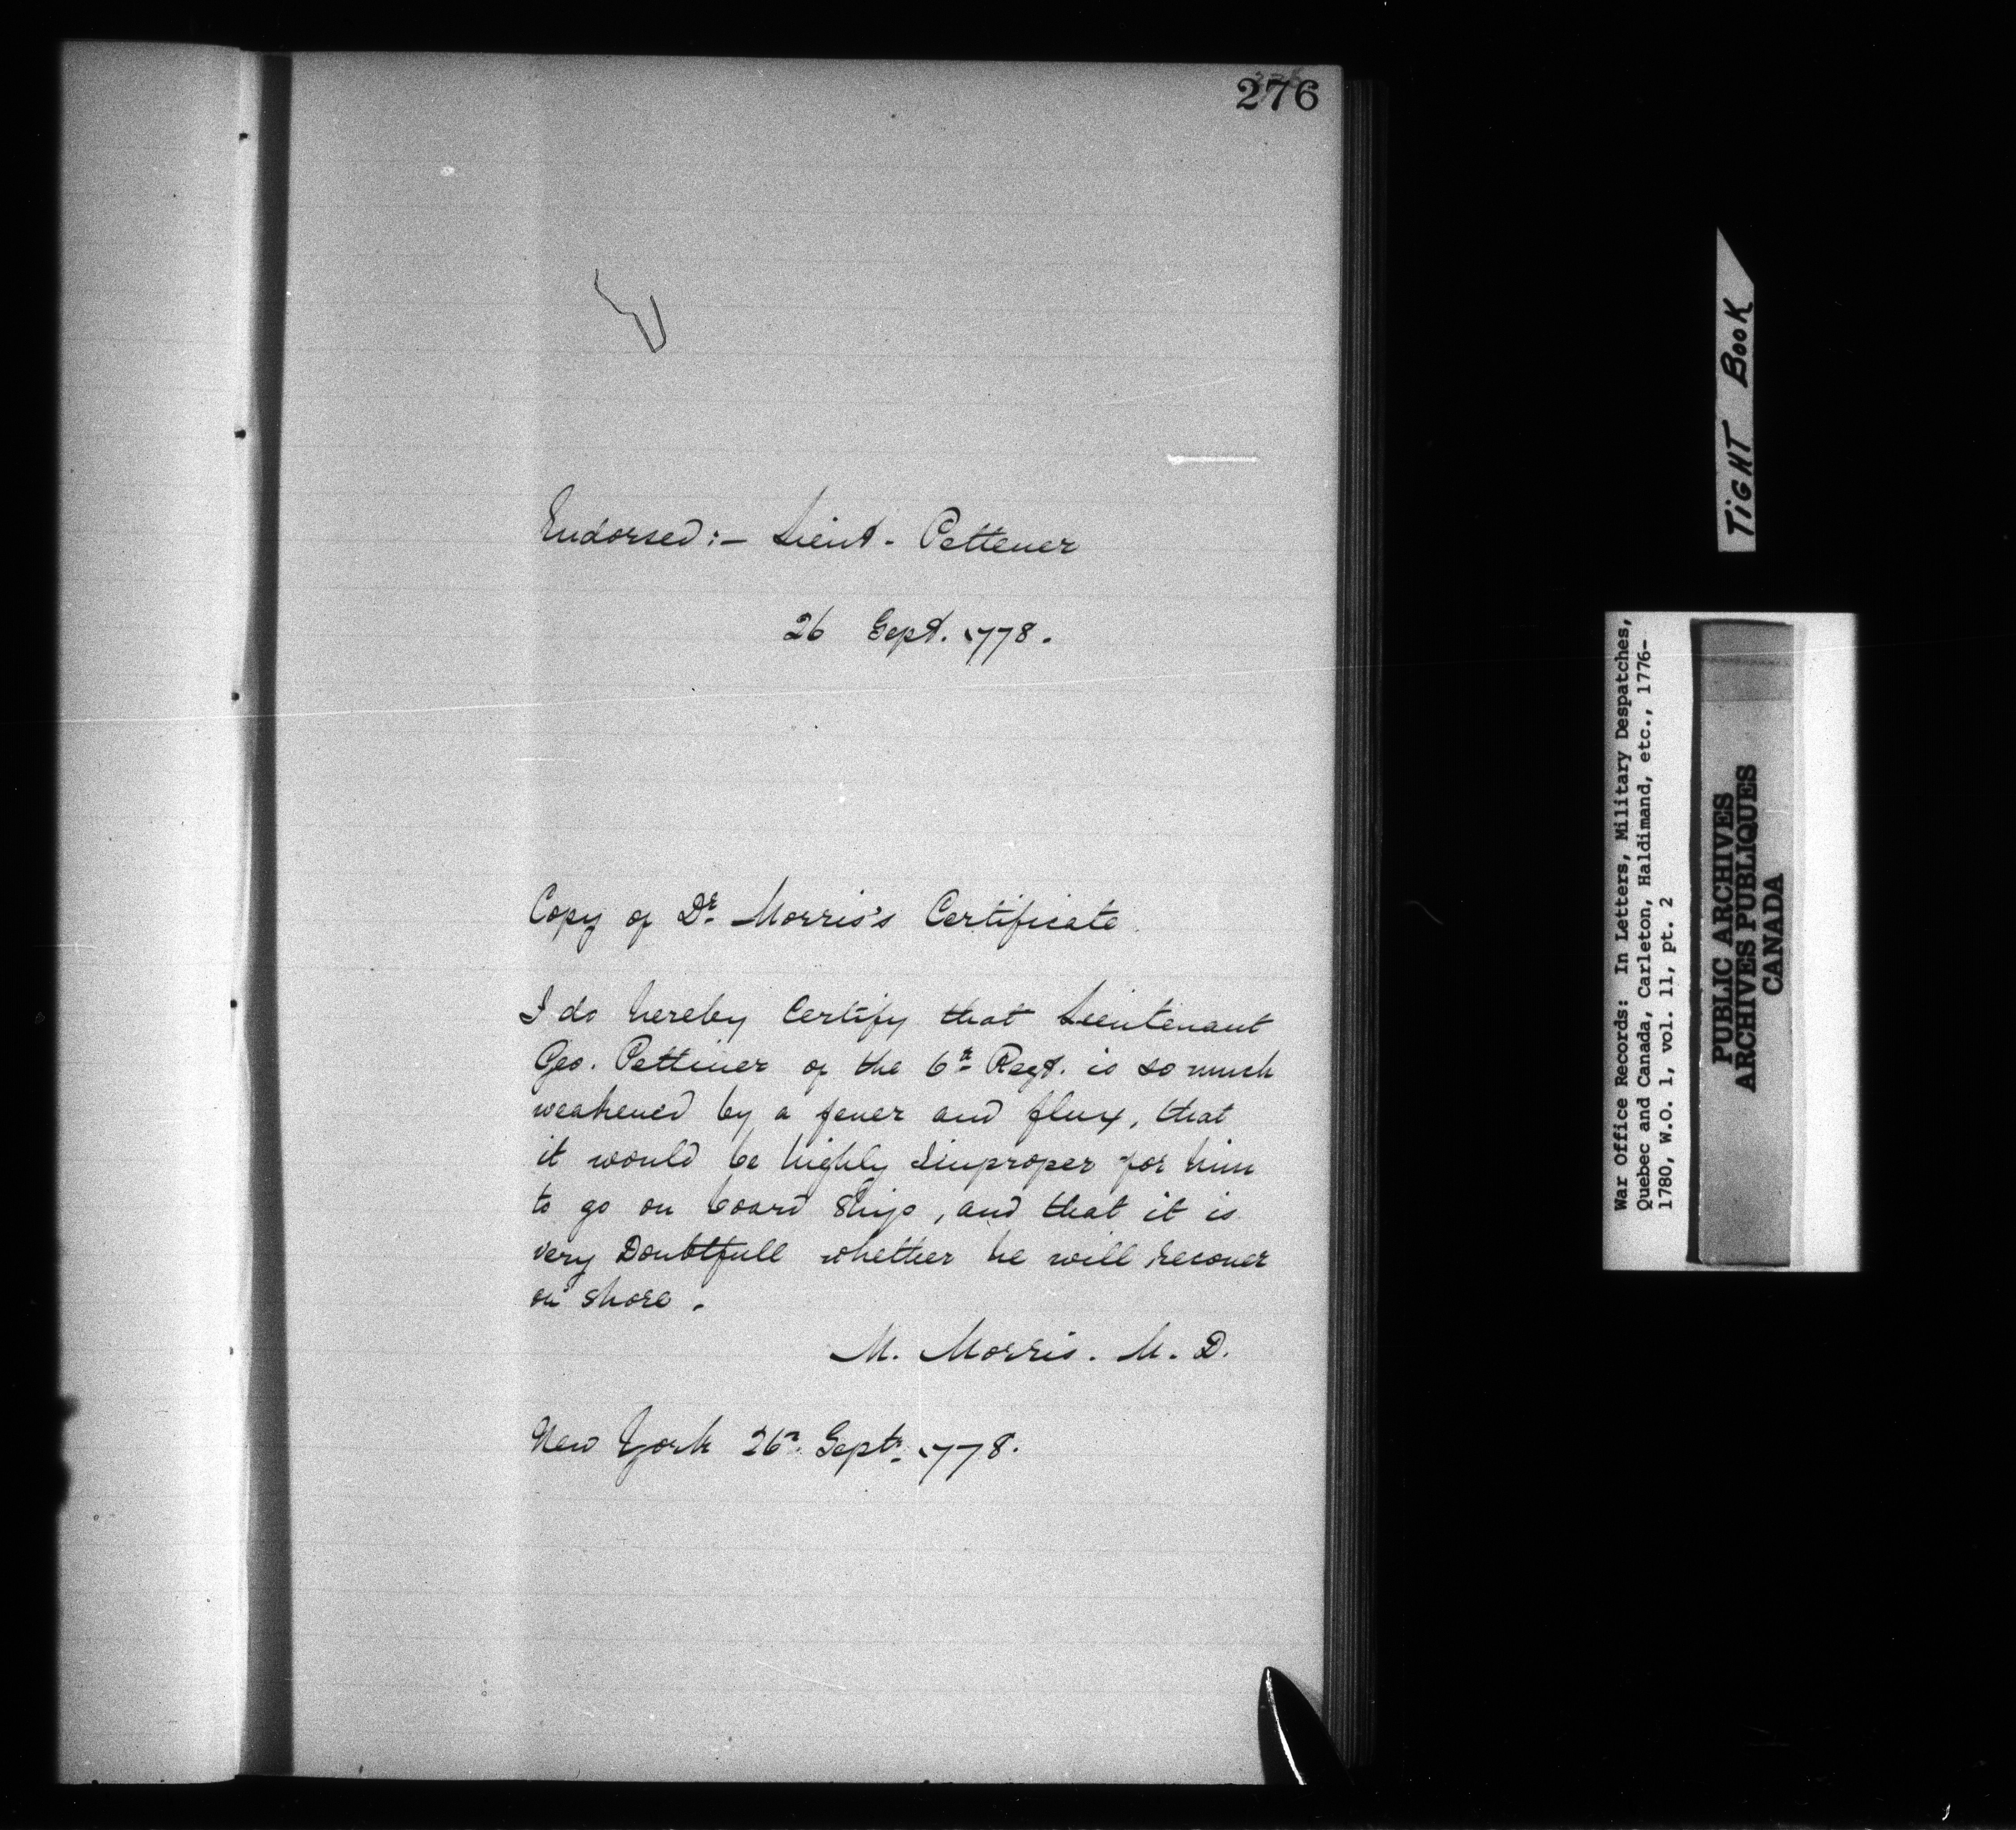 276
Endorsed:– Lieut. Pettener
26 Sept. 1778.
Copy of Dr. Morris's Certificate
I do hereby Certify that Lieutenant
Geo. Pettiner of the 6th Regt. is so much
weakened by a fever and flux, that
it would be highly Improper for him
to go on board Ship, and that it is
very Doubtfull whether he will recover
on shore.
M. Morris. M. D.
New York 26th Septr. 1778.
TIGHT BOOK
War Office Records: In Letters, Military Despatches,
Quebec and Canada, Carleton, Haldimand, etc., 1776-
1780, W.O. 1, vol. 11, pt. 2
PUBLIC ARCHIVES
ARCHIVES PUBLIQUES
CANADA